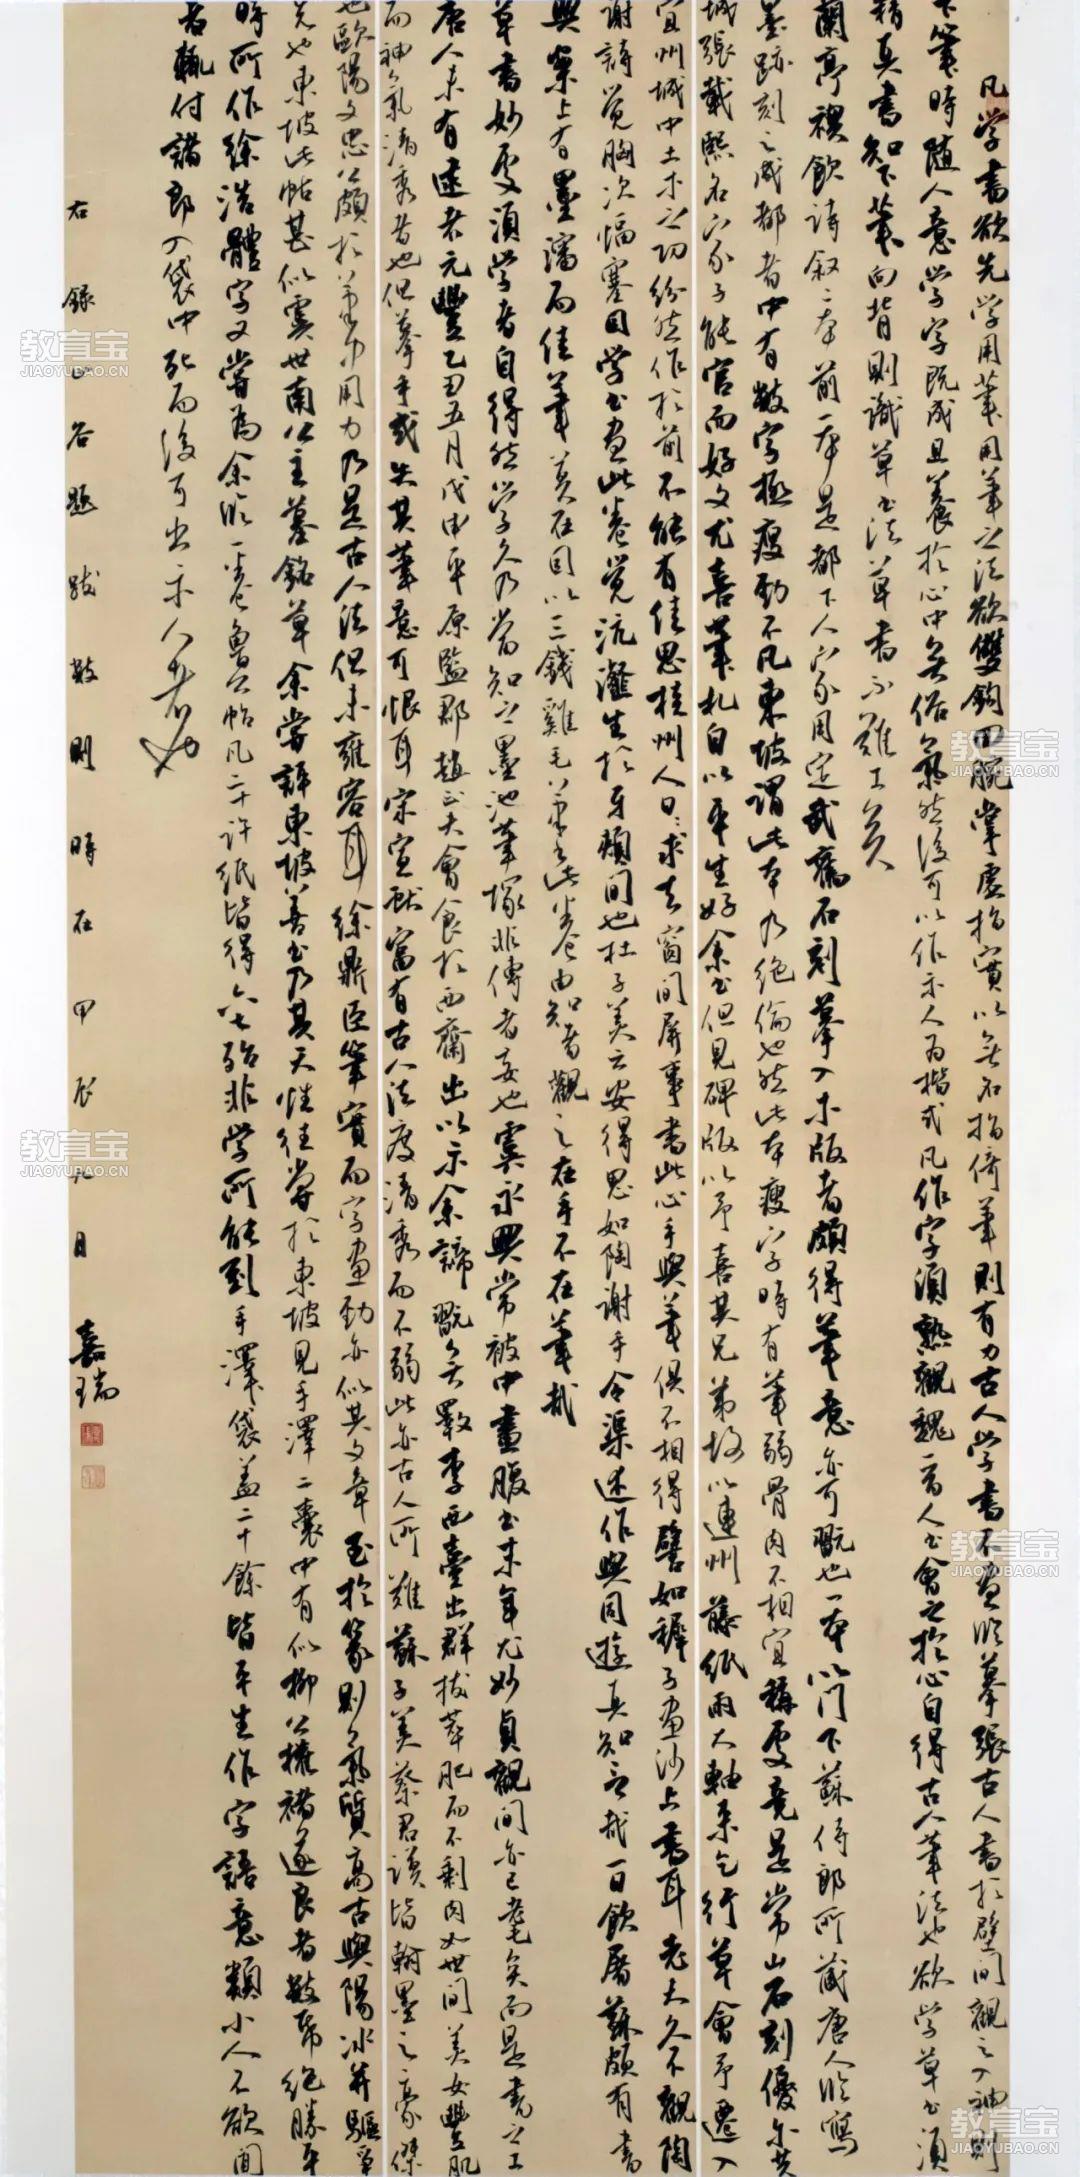 凡学書欲先学用筆用筆之法欲雙鉤回腕掌虛指實以無名指倚筆則有力古人学書不盡臨摹張古人書於壁間觀之入神則
下筆時随人意学字既成且養於心中無俗氣然後可以作示人為楷式凡作字須熟觀魏晋人書會之於心自得古人筆法也欲学草書須
精真書知下筆向背則識草書法草書不難工矣
蘭亭禊飲詩叙二本前一本是都下人家用定武舊石刻摹入木版者頗得筆意亦可翫也一本以門下蘇侍郎所藏唐人臨寫
墨跡刻之成都者中有數字極瘦勁不凡東坡謂此本乃絶倫也然此本瘦字時有筆弱骨肉不相宜稱處竟是常山石刻優尒其
城張載熙名家子能官而好文尤喜筆札自以平生好余書但見碑版以予喜其兄弟故以連州藤紙兩大軸来乞行草會予遷入
宜州城中土木之功紛然作於前不能有佳思桂州人日日求去窗間屏事書此心手與筆俱不相得譬如稺子畫沙上書耳老夫久不觀陶
謝詩覚胸次愊塞因学書盡此卷覚沆瀣生於牙頰間也杜子美云安得思如陶謝手令渠述作與同遊真知言哉一日飲屠蘇頗有書
興案上有墨瀋而佳筆莫在因以三錢雞毛筆書此卷由知者觀之在手不在筆哉
草書妙處須学者自得然学久乃當知之墨池筆塚非傳者妄也虞永興常被中畫腹書末年尤妙貞觀間亦已耄矣而是書之工
唐人未有逮者元豐乙丑五月戊申平原監郡趙正夫會食於西齋出以示余諦翫無斁李西臺出群拔萃肥而不剩肉如世間美女豐肌
而神氣清秀者也但摹手或失其筆意可恨耳宋宣献富有古人法度清秀而不弱此亦古人所難蘇子美蔡君謨皆翰墨之豪傑
也歐陽文忠公頗於筆中用力乃是古人法但未雍容耳徐鼎臣筆實而字畫勁亦似其文章至於篆則氣質高古與陽冰并驅争
先也東坡此帖甚似虞世南公主墓銘草余嘗評東坡善書乃其天性往嘗於東坡見手澤二囊中有似柳公權褚遂良者數帋絶勝平
時所作徐浩體字又嘗為余臨一卷魯公帖凡二十許紙皆得六七殆非学所能到手澤袋蓋二十餘皆平生作字語意類小人不欲聞
者輒付諸郎入袋中死而後可出示人者也
右録山谷題跋數則時在甲辰九月 嘉瑞
教育宝
JIAOYUBAO.CN
教育宝
JIAOYUBAO.CN
教育宝
JIAOYUBAO.CN
教育宝
JIAOYUBAO.CN
教育宝
JIAOYUBAO.CN
教育宝
JIAOYUBAO.CN